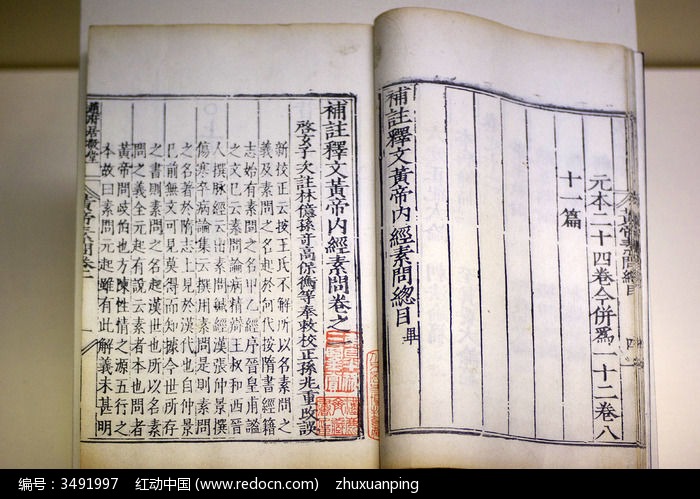 黃帝素問總目 四
元本二十四卷今併爲一十二卷八
十一篇
補註釋文黃帝內經素問總目畢
補註釋文黃帝內經素問卷之一
啓玄子次註林億孫奇高保衡等奉敕校正孫兆重改誤
新校正云按王氏不解所以名素問之
義及素問之名起於何代按隋書經籍
志始有素問之名甲乙經序晉皇甫謐
之文已云素問論病精辯王叔和西晉
人撰脈經云出素問鍼經漢張仲景撰
傷寒卒病論集云撰用素問是則素問
之名著於隋志上見於漢代也自仲景
已前無文可見莫得而知據今世所存
之書則素問之名起漢世也所以名素
問之義全元起有說云素者本也問者
黃帝問岐伯也方陳性情之源五行之
本故曰素問元起雖有此解義未甚明
趙府居敬堂
黃帝素問卷一
编号：3491997 红动中国 (www.redocn.com) zhuxuanping